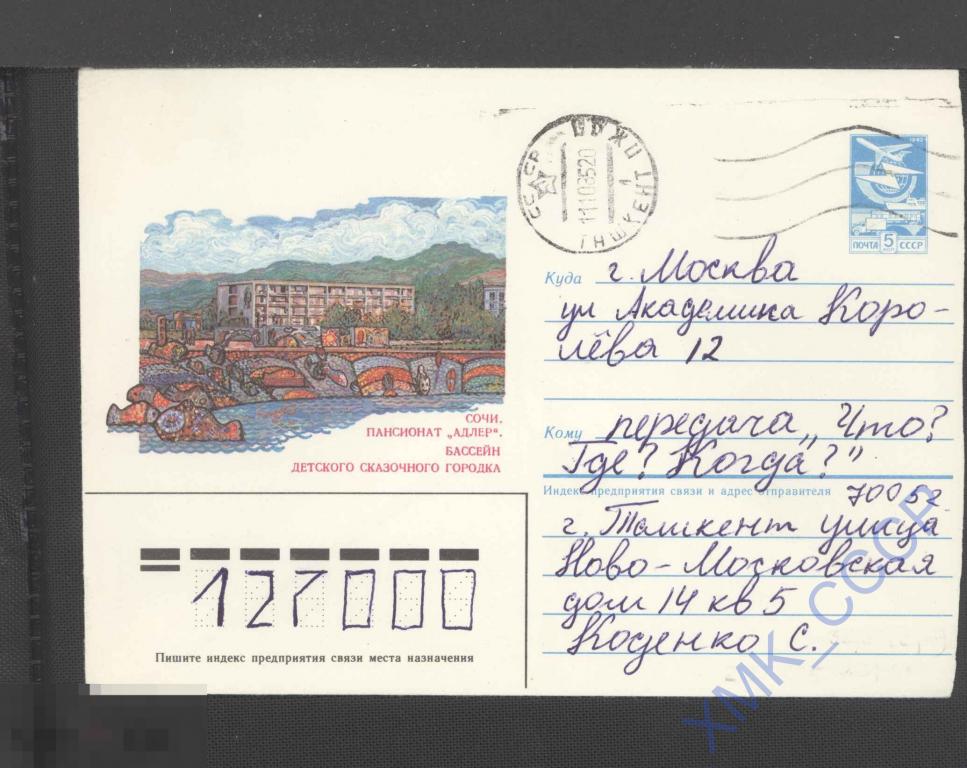 СССР
ТАШКЕНТ 1
11108520
1982
ПОЧТА 5 КОП СССР
СОЧИ.
ПАНСИОНАТ „АДЛЕР“.
БАССЕЙН
ДЕТСКОГО СКАЗОЧНОГО ГОРОДКА
Куда г. Москва
ул Академика Коро-
лёва 12
Кому передача „Что?
Где? Когда?"
Индекс предприятия связи и адрес отправителя 70052
г. Ташкент улица
Ново-Московская
дом 14 кв 5
Коденко С.
127000
Пишите индекс предприятия связи места назначения
ХМК_СССР